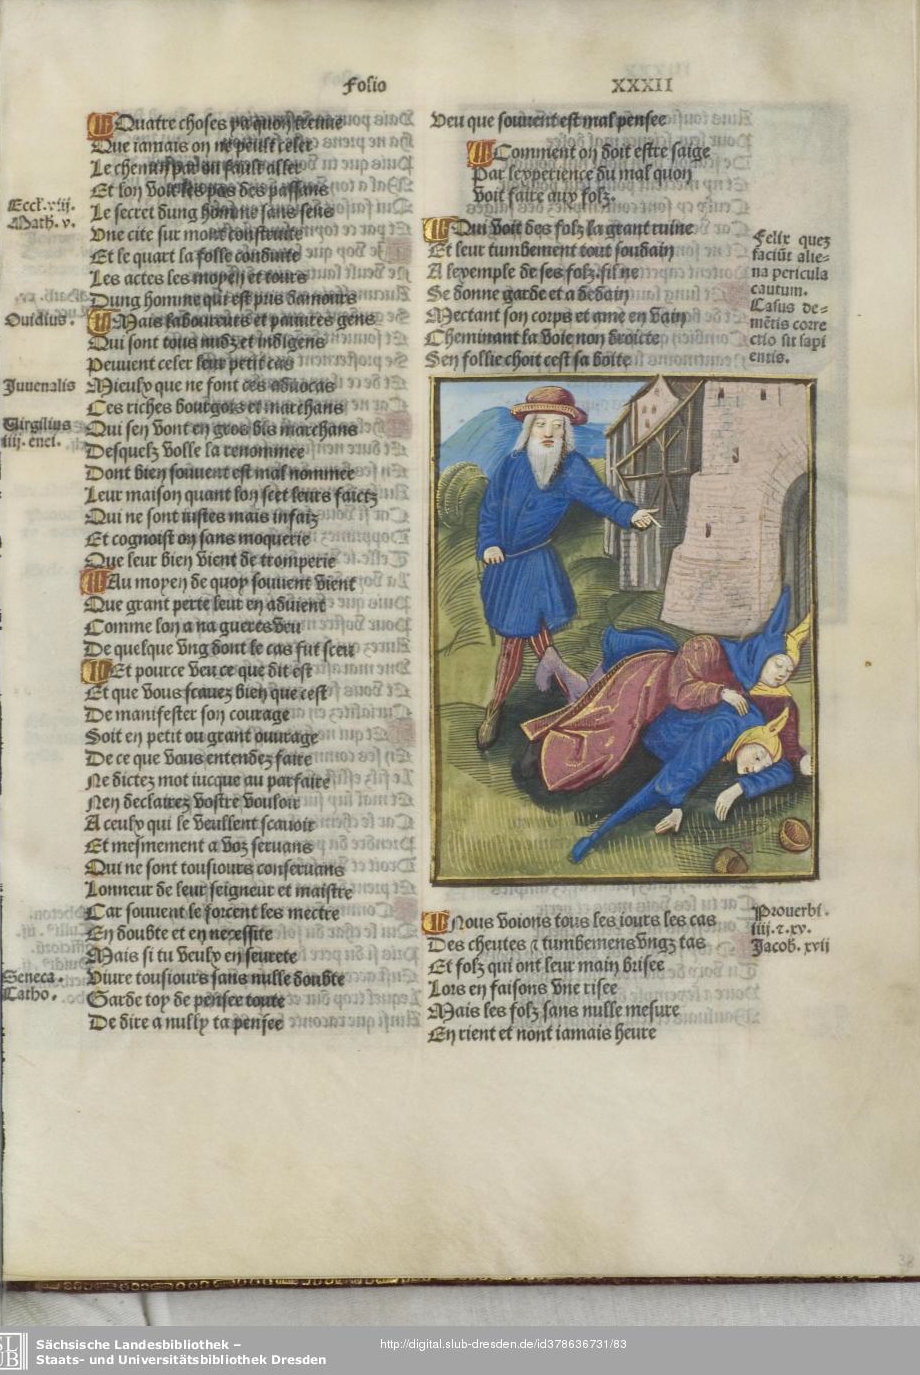 Folio
XXXII
Quatre choses
Que iamais on ne peult celer
Le chemin par ou fault aller
Et lon voit les pas des passans
Eccl. viij.
Math. v.
Le secret dung homme sans sens
Vne cite sur mont construite
Et le quart la folle conduite
Les actes les moyen et tours
Dung homme qui est pris damours
Ouidius.
Mais laboureurs et pauures gens
Qui sont tous nudz et indigens
Peuuent celer leur petit cas
Juuenalis
Mieulx que ne font ces aduocas
Ces riches bourgois et marchans
Virgilius
iiij. enei.
Qui sen vont en gros bis marchans
Desquelz volle la renommee
Dont bien souuent est mal nommee
Leur maison quant lon scet leurs faictz
Qui ne sont iustes mais infaiz
Et cognoist on sans moquerie
Que leur bien vient de tromperie
Au moyen de quoy souuent vient
Que grant perte leur en aduient
Comme lon a na gueres veu
De quelque vng dont le cas fut sceu
Et pource veu ce que dit est
Et que vous scauez bien que cest
De manifester son courage
Soit en petit ou grant ouurage
De ce que vous entendez faire
Ne dictez mot iucque au parfaire
Nen declairez vostre vouloir
A ceulx qui le veullent scauoir
Et mesmement a voz seruans
Qui ne sont tousiours conseruans
Lonneur de leur seigneur et maistre
Car souuent le forcent les mectre
En doubte et en necessite
Mais si tu veulx en seurete
Seneca.
Catho.
Viure tousiours sans nulle doubte
Garde toy de pensee toute
De dire a nully ta pensee
Veu que souuent est mal pensee
Comment on doit estre saige
Par lexperience du mal quon
voit faire aux folz.
Qui voit des folz la grant ruine
Et leur tumbement tout soudain
A lexemple de ses folz, sil ne
Se donne garde et a dedain
Mectant son corps et ame en vain
Cheminant la voie non droicte
Sen follie choit cest sa boite
Felix quez
faciūt alie=
na pericula
cautum.
Casus de=
mētis corre
ctio fit sapi
entis.
Nous voions tous les iours les cas
Des cheutes ⁊ tumbemens vngz tas
Et folz qui ont leur main brisee
Lors en faisons vne risee
Mais les folz sans nulle mesure
En rient et nont iamais heure
Prouerbi.
iiij. ⁊. xv.
Jacob. xvij
Sächsische Landesbibliothek –
Staats- und Universitätsbibliothek Dresden
http://digital.slub-dresden.de/id378636731/83